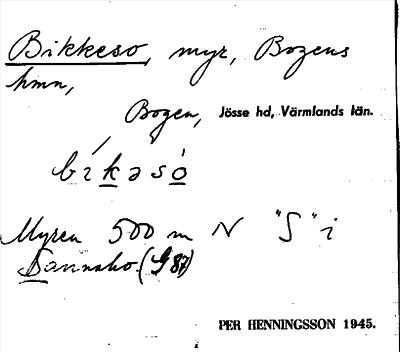 Bikkeso, myr, Bogens
hmn,
Bogen, Jösse hd, Värmlands län.
bíkəsò
Myren 500 m N "S" i
Sannsho. (G 87)
PER HENNINGSSON 1945.